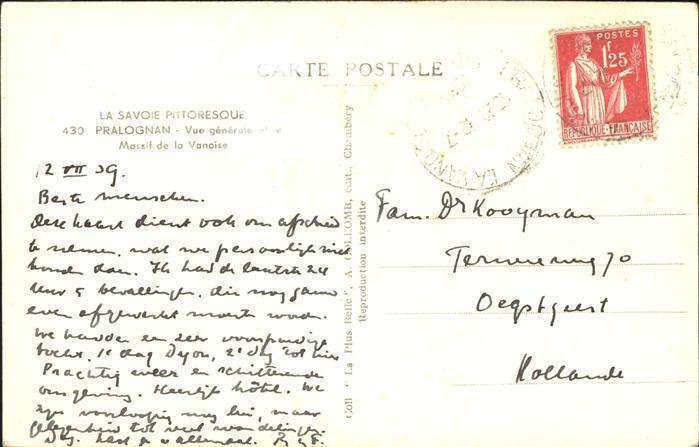 CARTE POSTALE
LA SAVOIE PITTORESQUE
430 PRALOGNAN - Vue générale et le
Massif de la Vanoise
POSTES
1F25
REPUBLIQUE FRANÇAISE
12 VII 39.
Beste menschen.
Deze kaart dient ook om afscheid
te nemen, wat we persoonlijk niet
konden doen. Ik had de laatste 24
uur 5 bevallingen, die nog gauw
even afgewerkt moesten worden.
We hadden een zeer voorspoedige
tocht, 1e dag Dyon, 2e dag tot hier
Prachtig weer en schitterende
omgeving. Heerlijk hôtel. We
zijn voorloopig nog lui, maar
gelegenheid tot veel wandelingen.
Dag. allemaal.
Coll. "La Plus Belle", A. COLLOMB, édit. Chambéry
Reproduction interdite
Fam. Dr Kooyman
70
Oegstgeest
Hollande